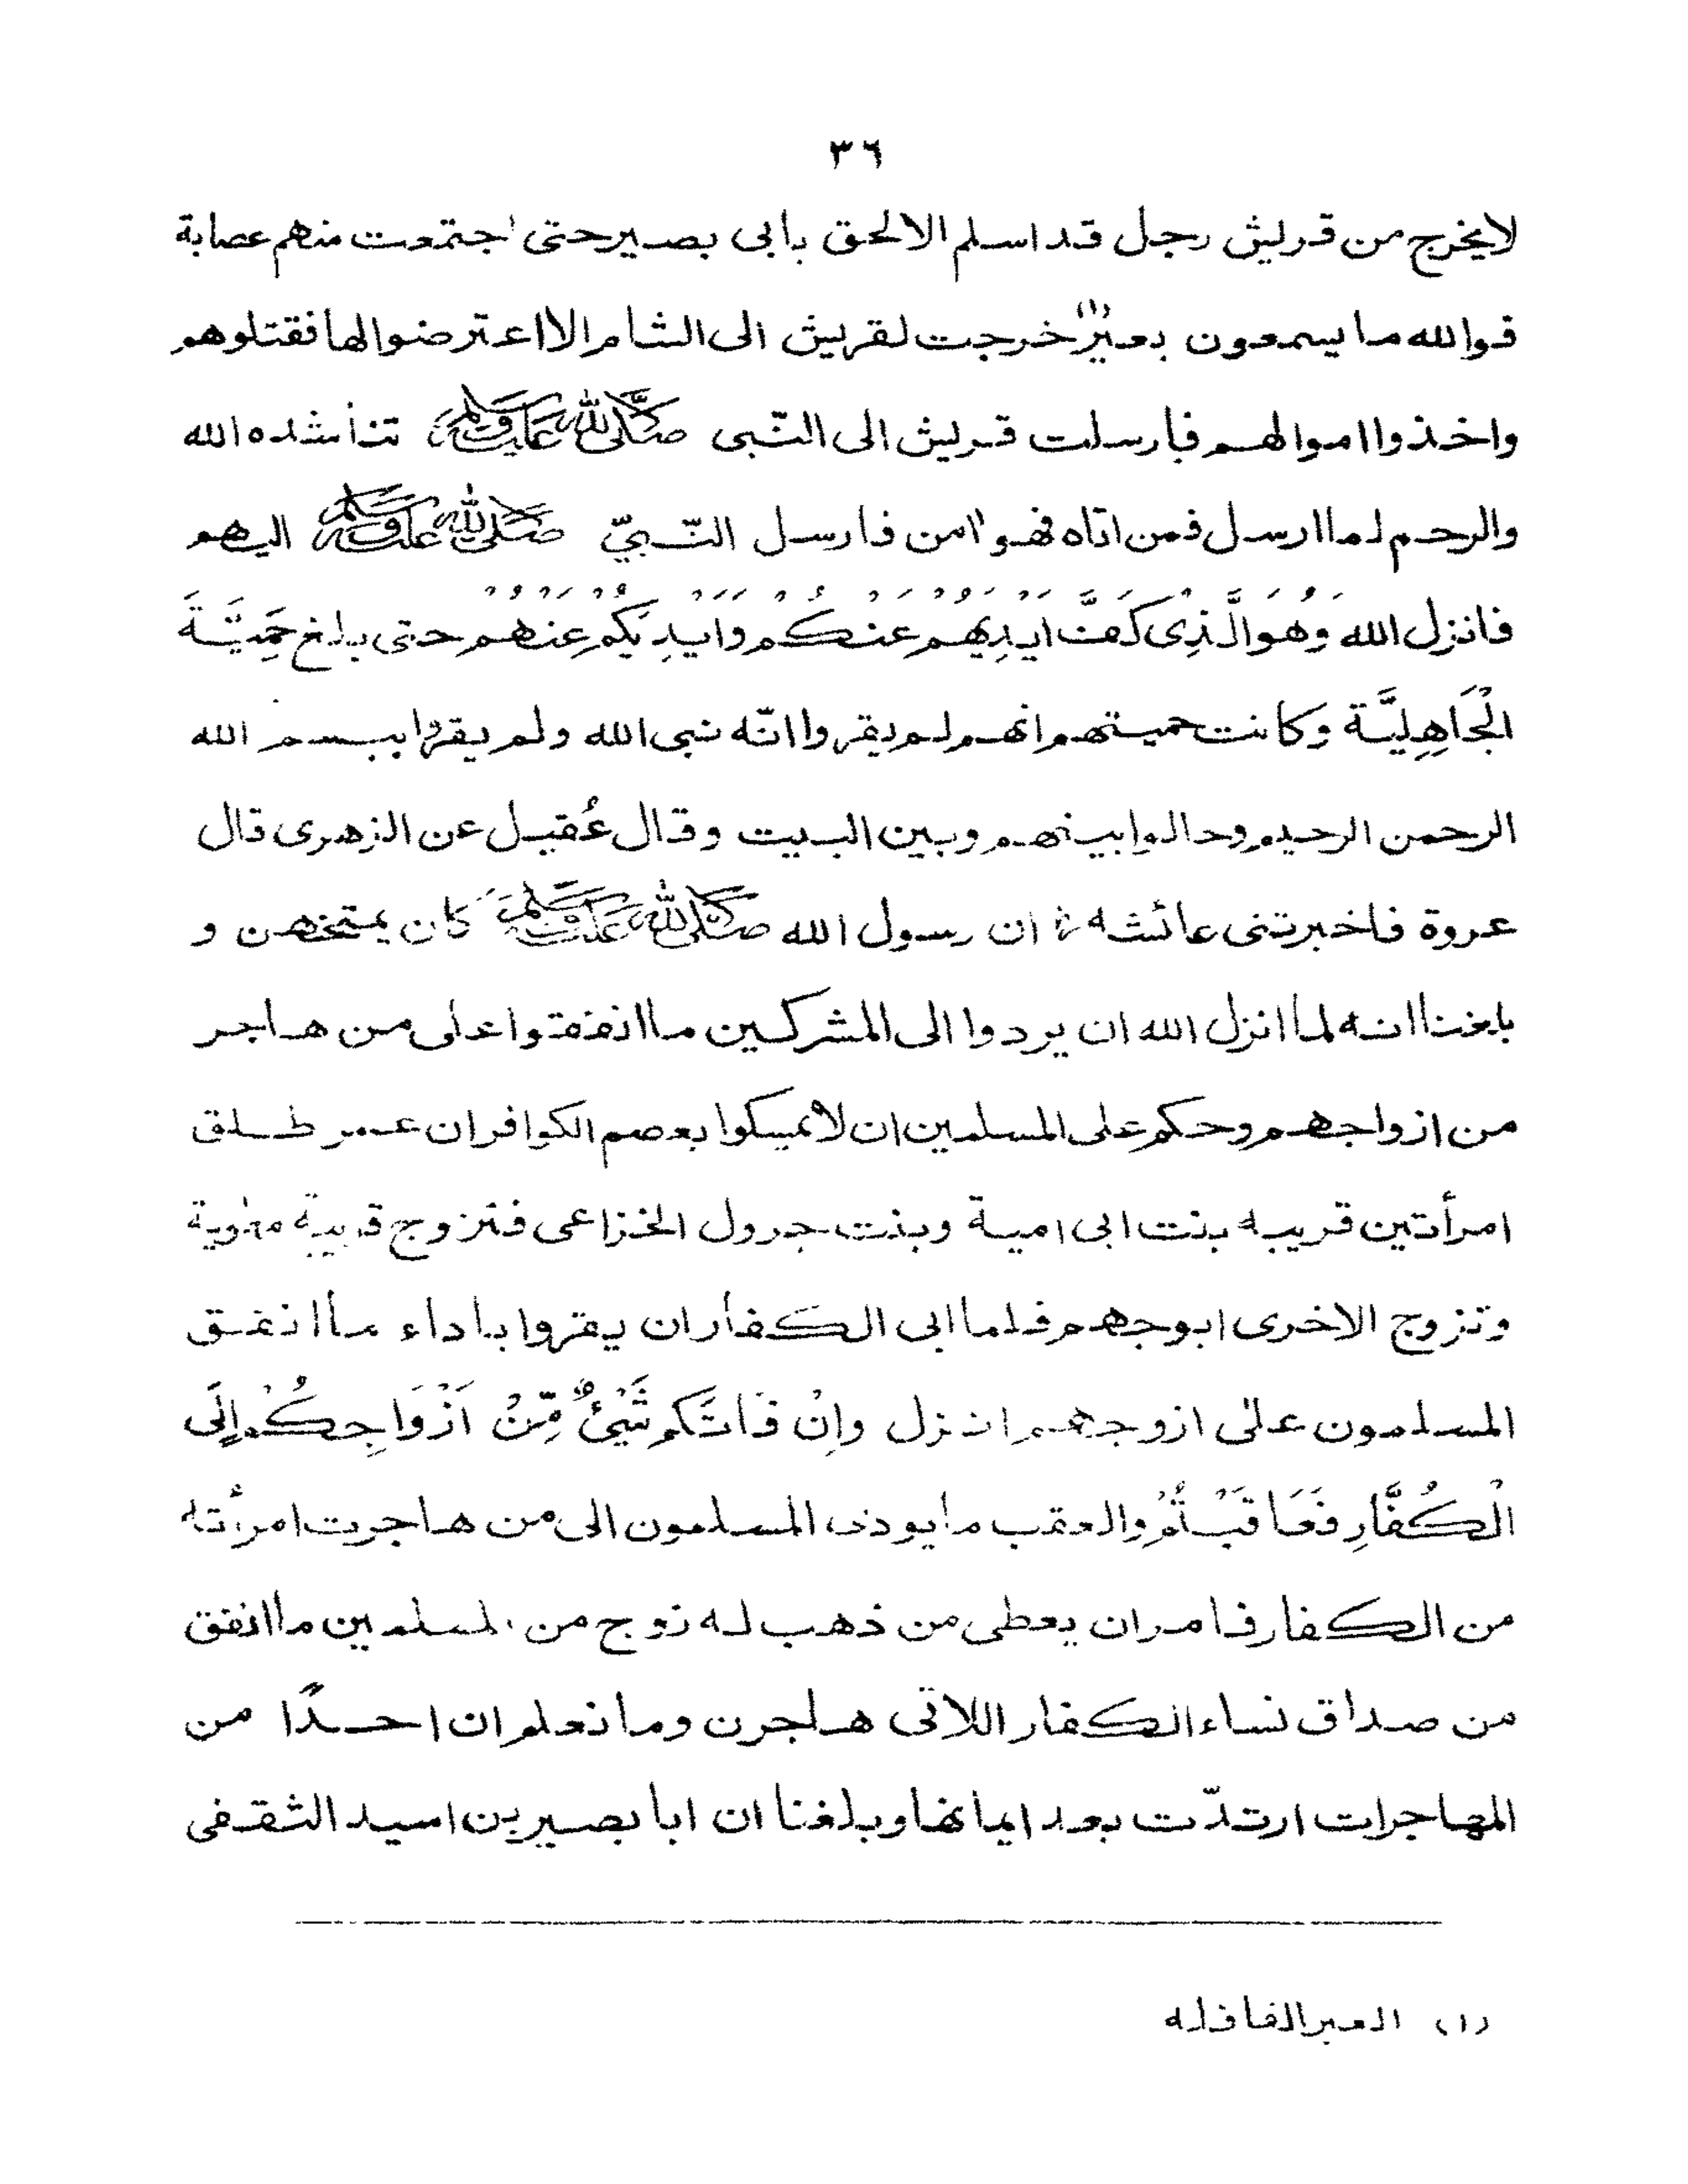 ٣٦
لا يخرج من قريش رجل قد اسلم الا لحق بابى بصير حتى اجتمعت منهم عصابة
فوالله ما يسمعون بعير(١) خرجت لقريش الى الشام الا اعترضوا لها فقتلوهم
واخذوا اموالهم فارسلت قريش الى النّبى صَلَّى اللهُ عَلَيْهِ وَسَلَّمَ تناشده الله
والرحم لما ارسل فمن اتاه فهو اٰمن فارسل النّبيّ صَلَّى اللهُ عَلَيْهِ وَسَلَّمَ اليهم
فانزل الله وَهُوَ الَّذِىْ كَفَّ اَيْدِيَهُمْ عَنْكُمْ وَاَيْدِيَكُمْ عَنْهُمْ حتى بلغ حَمِيَّةَ
الْجَاهِلِيَّة وكانت حميتهم انهم لم يقروا انّه نبى الله ولم يقرّوا ببسم الله
الرحمن الرحيم وحالوا بينهم وبين البيت وقال عُقيل عن الزهرى قال
عروة فاخبرتنى عائشه رض ان رسول الله صَلَّى اللهُ عَلَيْهِ وَسَلَّمَ كان يمتحنهن و
بلغنا انه لما انزل الله ان يردوا الى المشركين ما انفقوا على من هاجر
من ازواجهم وحكم على المسلمين ان لا يمسكوا بعصم الكوافر ان عمر طلق
امرأتين قريبه بنت ابى امية وبنت جرول الخزاعى فتزوج قريبة معٰوية
وتزوج الاخرى ابوجهم فلما ابى الكفار ان يقروا باداء ما انفق
المسلمون علىٰ ازوجهم انزل وانْ فَاتَكم شَيْئٌ مِّنْ اَزْوَاجِكُمْ اِلَى
الْكُفَّارِ فَعَاقَبْتُمْ والعقب ما يودى المسلمون الى من هاجرت امرأته
من الكفار فامر ان يعطى من ذهب له زوج من المسلمين ما انفق
من صداق نساء الكفار اللاتى هاجرن وما نعلم ان احدًا من
المهاجرات ارتدّت بعد ايمانها وبلغنا ان ابا بصير بن اسيد الثقفى
(١) العير القافله